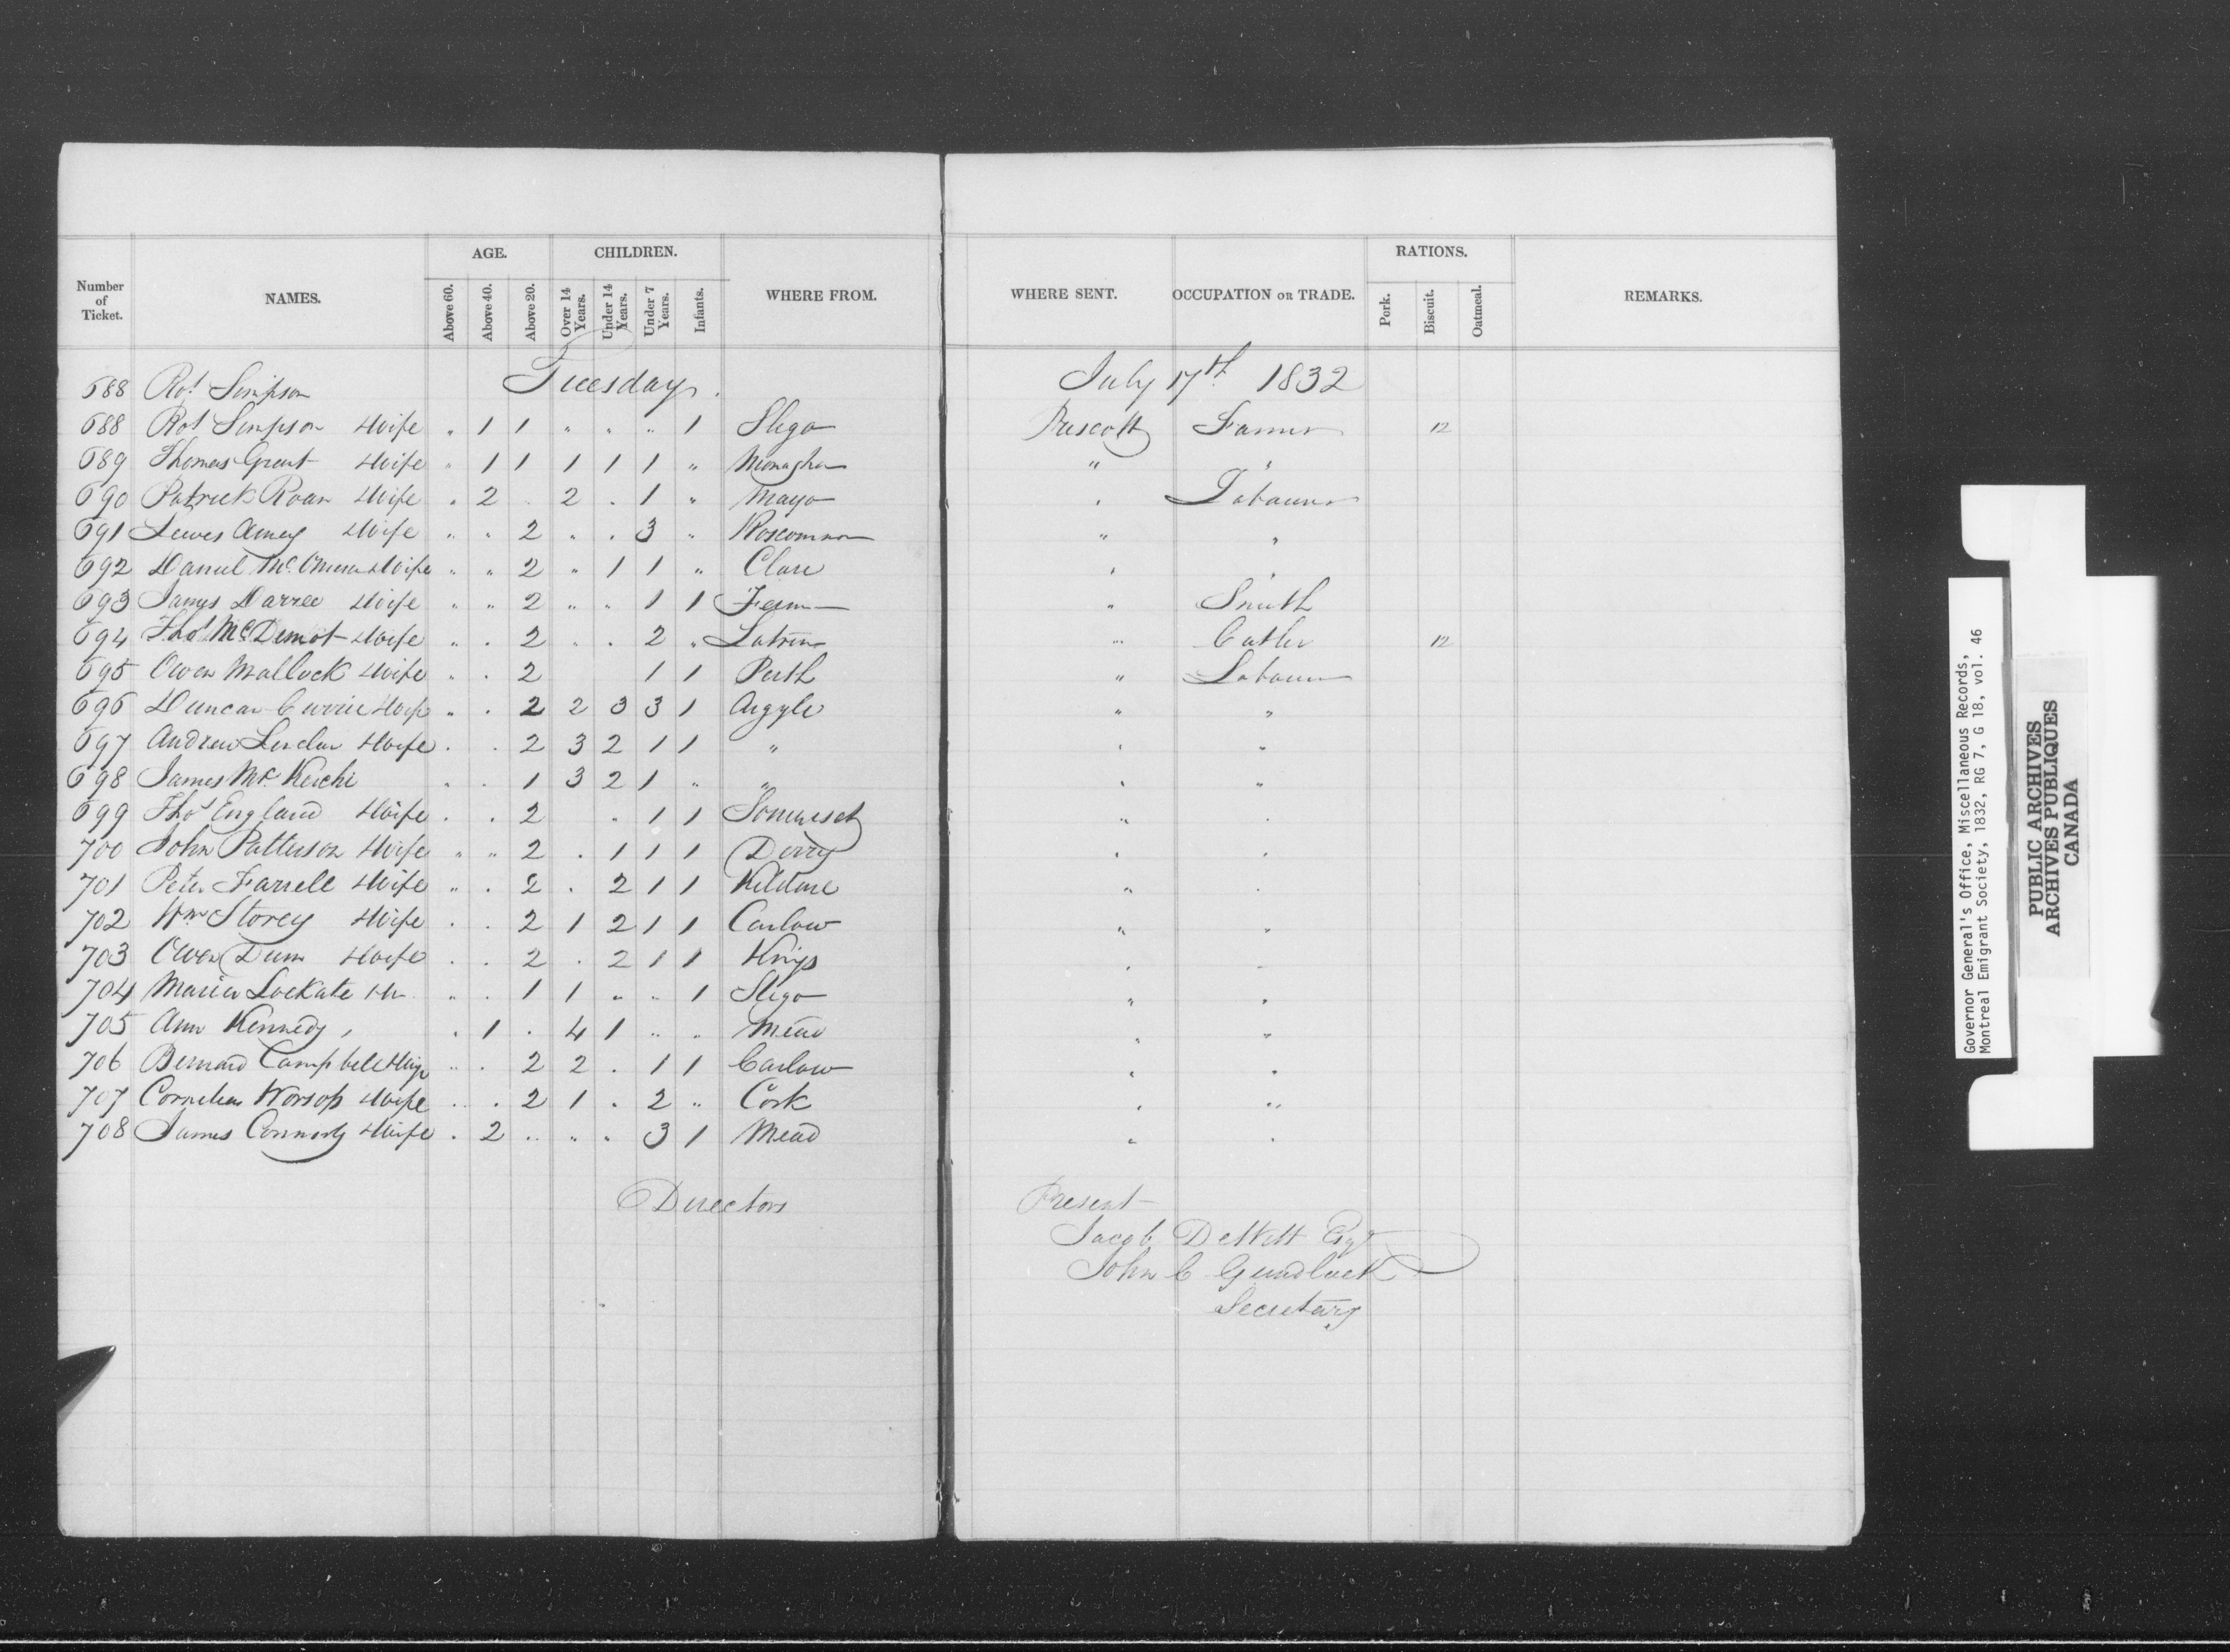 AGE. CHILDREN. RATIONS.
Number of Ticket. NAMES. Above 60. Above 40. Above 20. Over 14 Years. Under 14 Years. Under 7 Years. Infants. WHERE FROM. WHERE SENT. OCCUPATION OR TRADE. Pork. Biscuit. Oatmeal. REMARKS.
688 Rot Simpson Tuesday. July 17th 1832
688 Rot Simpson Wife " 1 1 " " " 1 Sligo Prescott Farmer 12
689 Thomas Grant Wife " 1 1 1 1 1 " Monaghan " "
690 Patrick Roan Wife " 2 . 2 . 1 " Mayo " Labourer
691 Wife " " 2 " . 3 " Roscommon " "
692 Daniel Wife " " 2 " 1 1 " Clare " "
693 James Wife " " 2 " " 1 1 Ferm " Smith
694 Thos McDermot Wife " . 2 " . 2 " Latrim " Cutler 12
695 Owen Mallock Wife " . 2 1 1 Perth " Labourer
696 Duncan Currie Wife " . 2 2 3 3 1 Argyle " "
697 Andrew Wife . . 2 3 2 1 1 " " "
698 James Mc Keichi " . 1 3 2 1 " " " "
699 Thos England Wife . . 2 " 1 1 Somerset " .
700 John Patterson Wife " " 2 . 1 1 1 Derry " .
701 Peter Farrell Wife " . 2 . 2 1 1 Kildare " .
702 Wm Storey Wife . . 2 1 2 1 1 Carlow " "
703 Owen Dunn Wife . . 2 . 2 1 1 Kings " "
704 Maria Lockate " . 1 1 " " 1 Sligo " "
705 Ann Kennedy . 1 . 4 1 " . Mead " "
706 Bernard Campbell Wife " . 2 2 . 1 1 Carlow " "
707 Cornelius Worsop Wife " . 2 1 . 2 " Cork " "
708 James Connorty Wife . 2 " " " 3 1 Mead " .
Directors Present
Jacob DeWitt Esqr
John C Gundlack
Secretary
Governor General's Office, Miscellaneous Records,
Montreal Emigrant Society, 1832, RG 7, G 18, vol. 46
PUBLIC ARCHIVES
ARCHIVES PUBLIQUES
CANADA